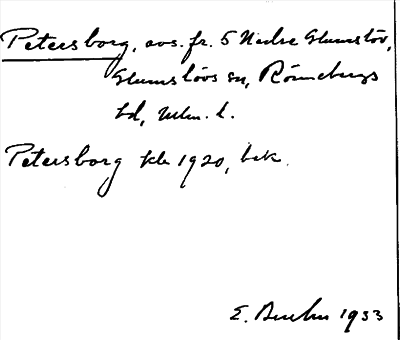 Petersborg, avs. fr. 5 Nedre Glumslöv,
Glumslövs sn, Rönnebergs
hd, Mlm. l.
Petersborg kk 1920, bek.
E. 1933